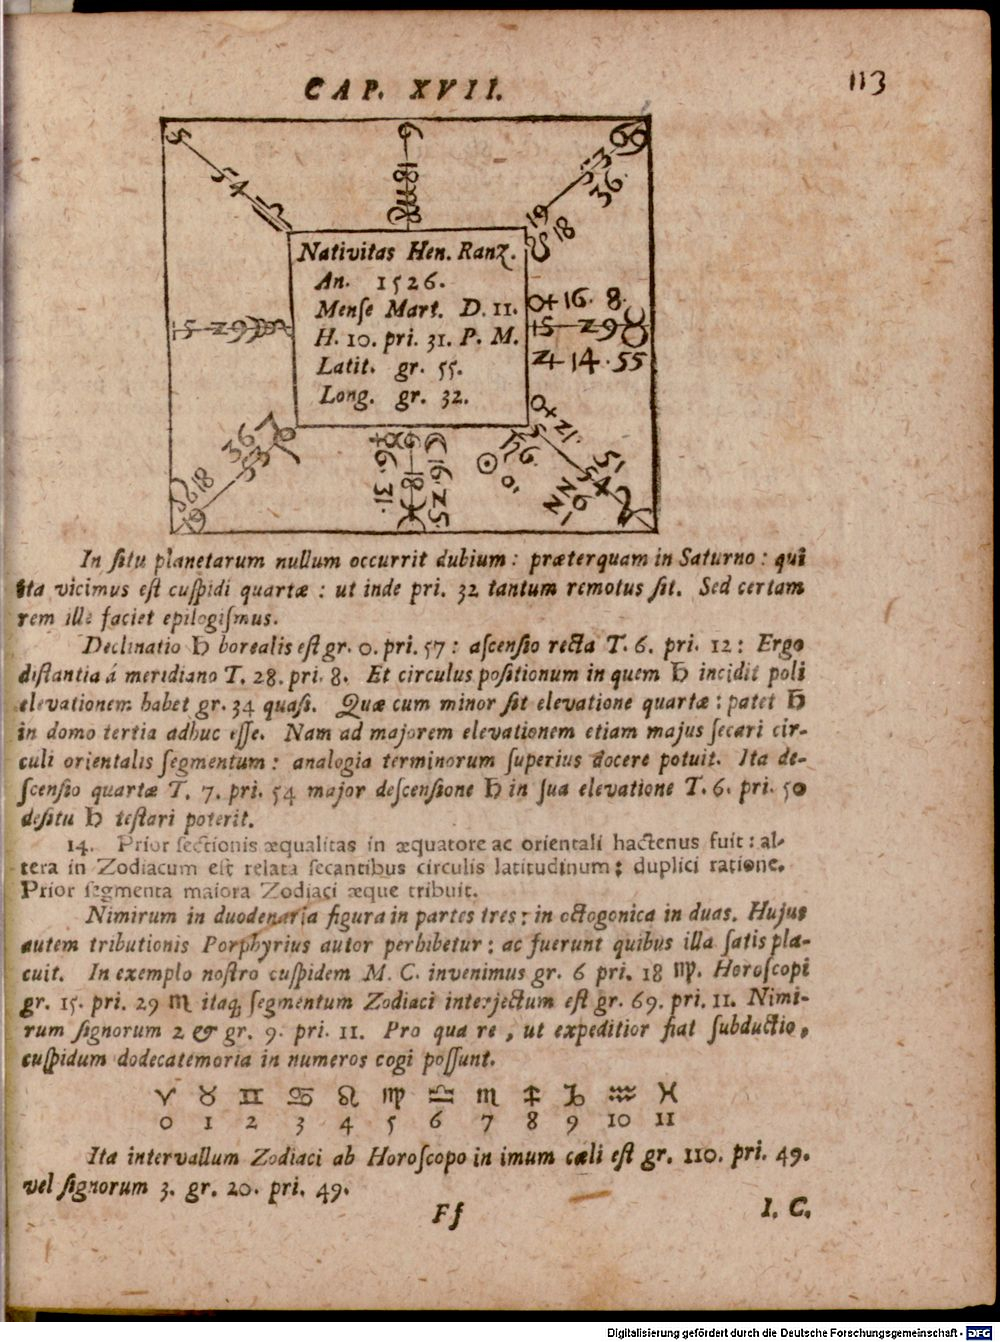 CAP. XVII.
113
Nativitas Hen. Ranz.
An. 1526.
Menſe Mart. D. 11.
H. 10. pri. 31. P. M.
Latit. gr. 55.
Long. gr. 32.
5 54 ♎
♍ 18 6
19 53 69
36
☋ 18
♀ 16. 8.
15 29 ♉
♃ 14. 55
15 29 ♏
☊ 18
36
53
☿ 6. 31.
♓ 18 6
☽ 16. 25.
☉ 0.
♄ 6.
5 54 ♈
In ſitu planetarum nullum occurrit dubium : præterquam in Saturno : qui
ita vicimus eſt cuſpidi quartæ : ut inde pri. 32 tantum remotus ſit. Sed certam
rem ille faciet epilogiſmus.
Declinatio ♄ borealis eſt gr. 0. pri. 57 : aſcenſio recta T. 6. pri. 12 : Ergo
diſtantia á meridiano T. 28. pri. 8. Et circulus poſitionum in quem ♄ incidit poli
elevationem habet gr. 34 quaſi. Quæ cum minor ſit elevatione quartæ : patet ♄
in domo tertia adhuc eſſe. Nam ad majorem elevationem etiam majus ſecari cir-
culi orientalis ſegmentum : analogia terminorum ſuperius docere potuit. Ita de-
ſcenſio quartæ T. 7. pri. 54 major deſcenſione ♄ in ſua elevatione T. 6. pri. 50
de ſitu ♄ teſtari poterit.
14. Prior ſectionis æqualitas in æquatore ac orientali hactenus fuit : al-
tera in Zodiacum eſt relata ſecantibus circulis latitudinum ; duplici ratione.
Prior ſegmenta maiora Zodiaci æque tribuit.
Nimirum in duodenaria figura in partes tres : in octogonica in duas. Hujus
autem tributionis Porphyrius autor perhibetur : ac fuerunt quibus illa ſatis pla-
cuit. In exemplo noſtro cuſpidem M. C. invenimus gr. 6 pri. 18 ♍. Horoſcopi
gr. 15. pri. 29 ♏ itaq; ſegmentum Zodiaci interjectum eſt gr. 69. pri. 11. Nimi-
rum ſignorum 2 & gr. 9. pri. 11. Pro qua re , ut expeditior fiat ſubductio,
cuſpidum dodecatemoria in numeros cogi poſſunt.
♈ ♉ ♊ ♋ ♌ ♍ ♎ ♏ ♐ ♑ ♒ ♓
0 1 2 3 4 5 6 7 8 9 10 11
Ita intervallum Zodiaci ab Horoſcopo in imum cæli eſt gr. 110. pri. 49.
vel ſignorum 3. gr. 20. pri. 49.
Ff
I. C.
Digitalisierung gefördert durch die Deutsche Forschungsgemeinschaft - DFG